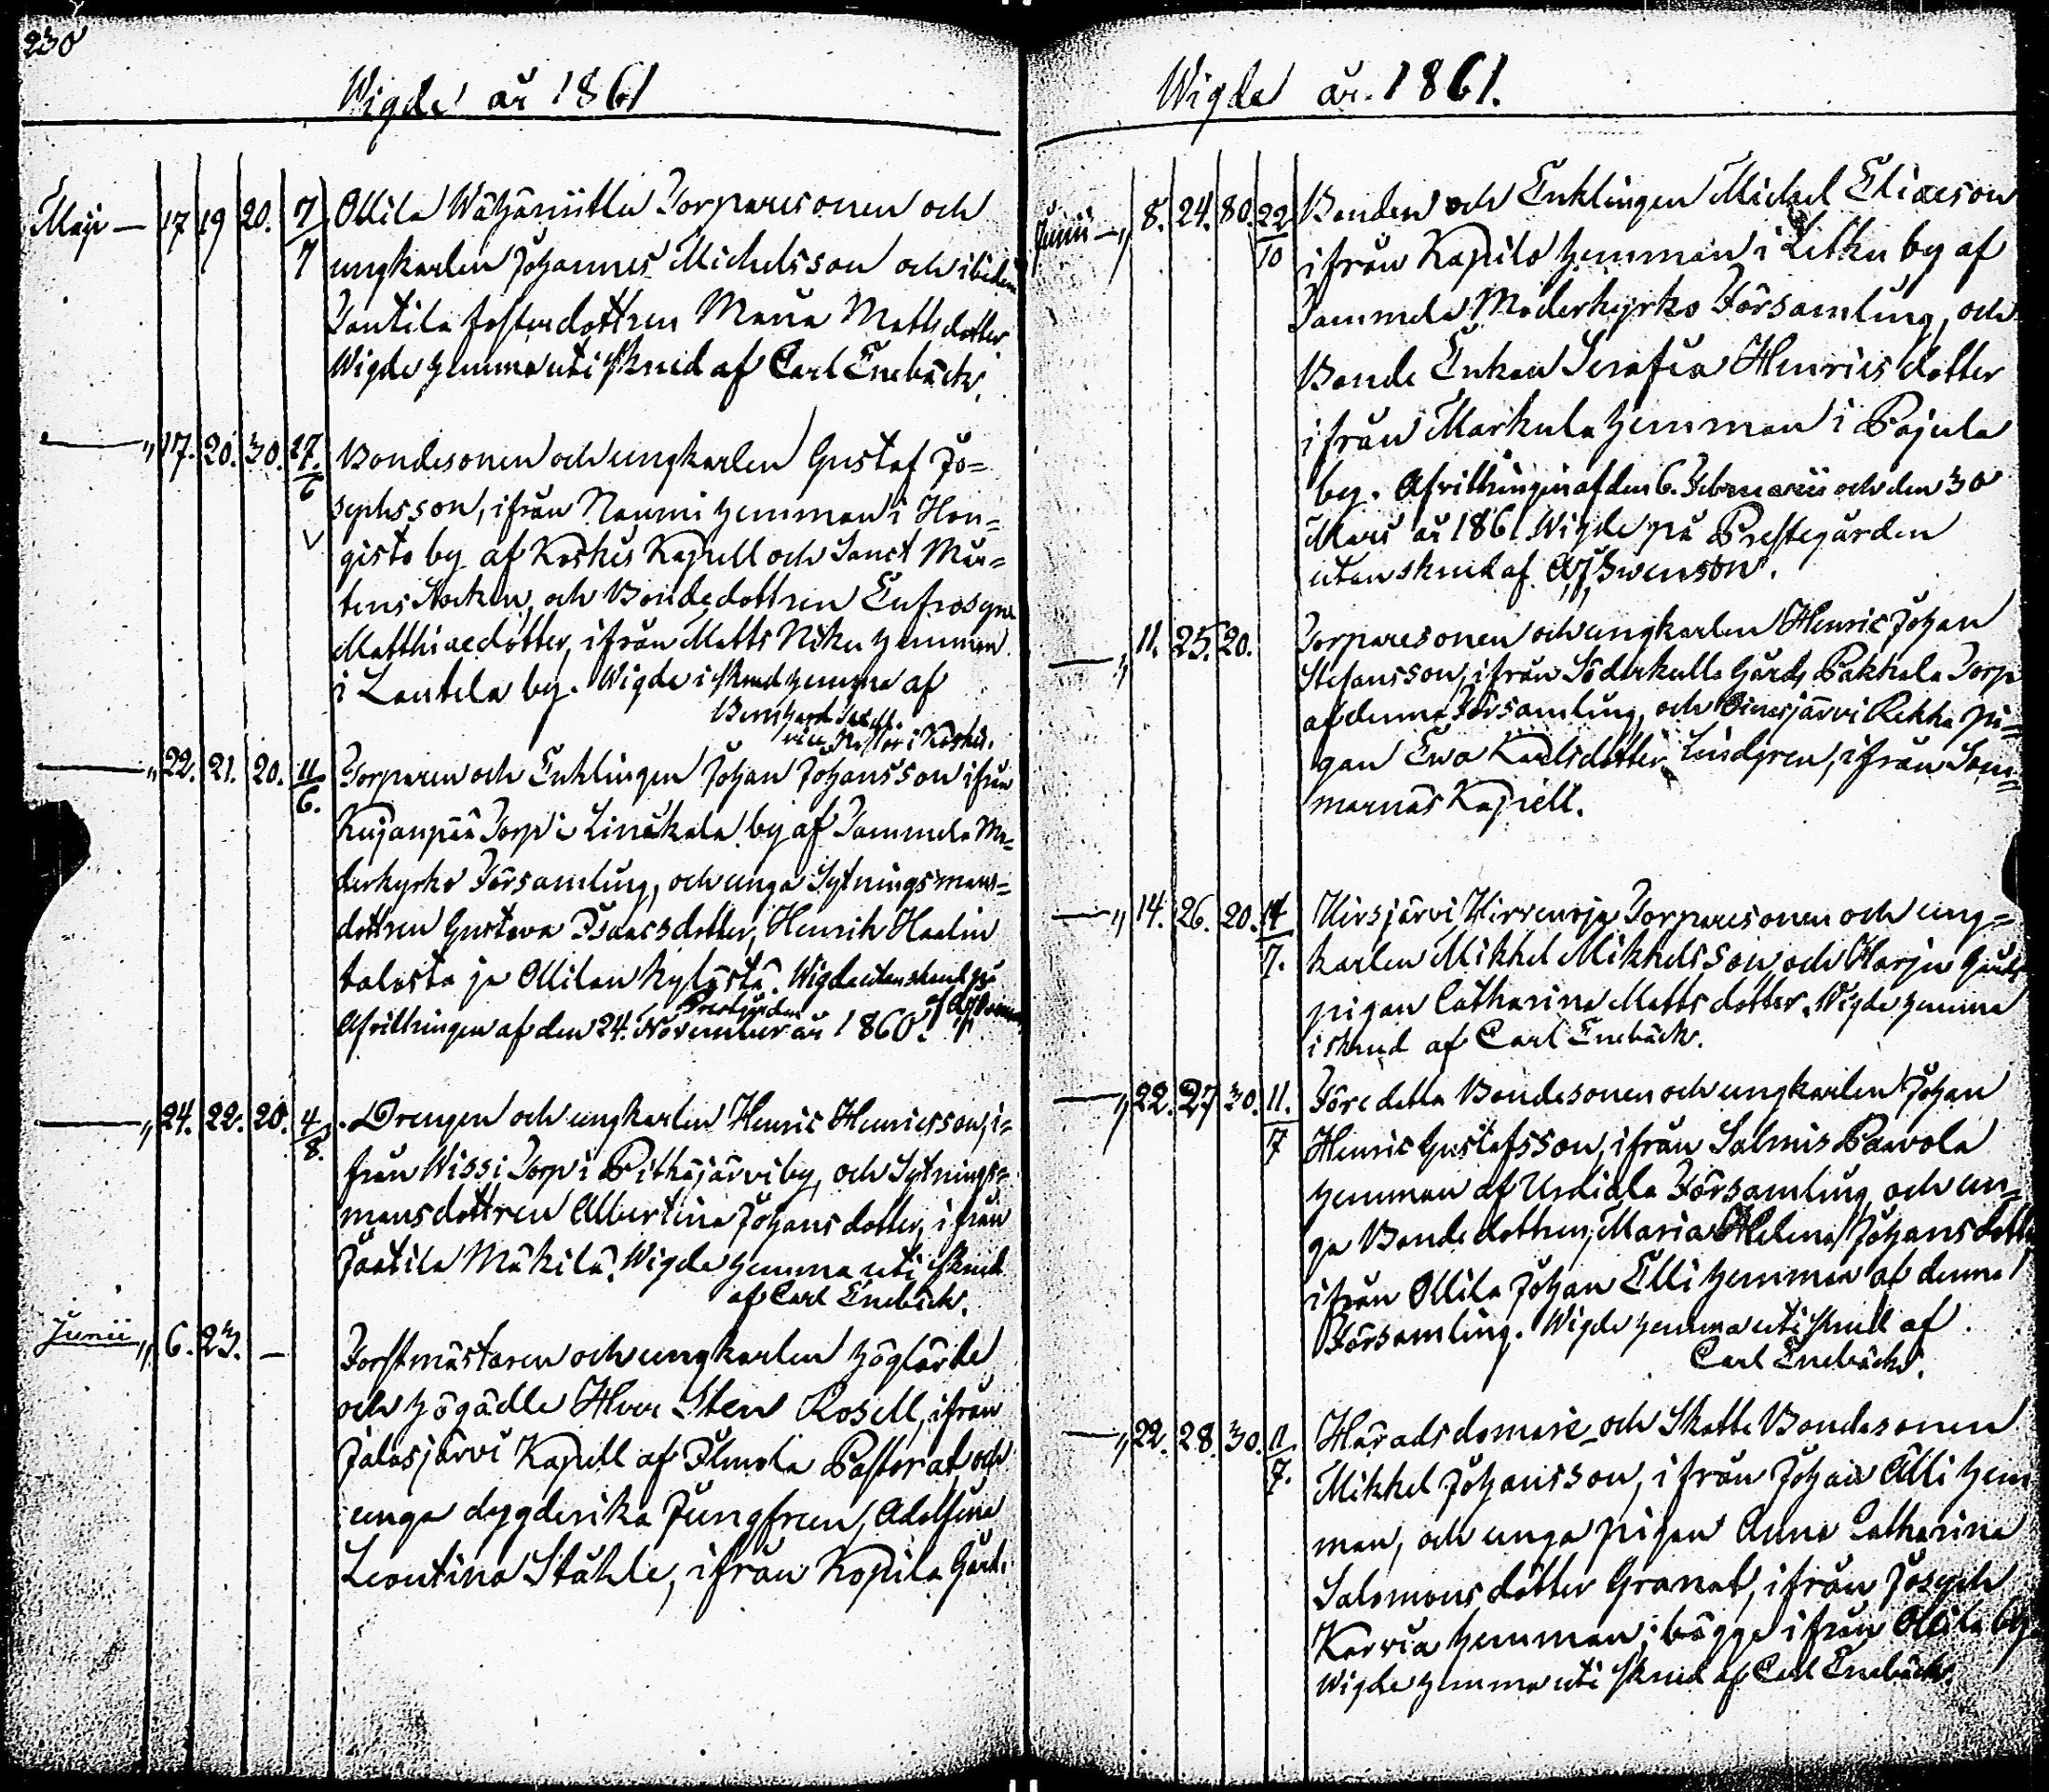 230
Wigde år 1861
Maji — 17 19 20. 7/7 Ollila Wähäniittu Torparesonen och
ungkarlen Johannes Michelsson och ibidem
Jautila fosterdottren Maria Mattsdotter
Wigde hemma uti skrud af Carl Enebäck.
— „ 17. 20. 30. 27./6 Bondesonen och ungkarlen Gustaf Jo=
sephsson, ifrån Naumi hemman i Hon=
gisto by af Koskis Kapell och Sanct Mår=
tens Socken, och Bondedottren Eufrosyna
Matthiaedotter, ifrån Matts Niku hemman
i Lautela by. Wigde i skrud hemma af
Bernhard
vice Pastor i Koskis.
— „ 22. 21. 20. 11/6. Torparen och Enklingen Johan Johansson ifrån
Kujanpää Torp i Linikala by af Tammela Mo=
derkyrko Församling, och unga Sytningsmans=
dottren Gustava Isaacsdotter, Henrik Haalin
talosta ja Ollilan kylästä. Wigde utan skrud på
Prestgården
Afvittringen af den 24. November år 1860. af
— „ 24. 22. 20. 4/8. Drengen och ungkarlen Henric Henricsson, i=
från Wissi Torp i Pitkäjärvi by, och Sytnings=
mansdottren Albertina Johansdotter, ifrån
Jaatila Mäkilä. Wigde hemma uti skrud
af Carl Enebäck.
Junii „ 6. 23. — Forstmästaren och ungkarlen höglärde
och högädle Herr Sten Rosell, ifrån
Jalasjärvi Kapell af Ilmola Pastorat och
unga dygderika Jungfrun, Adolfina
Leontina Ståhle, ifrån Kopila Gård.
Wigde år. 1861.
Junii — „ 8. 24. 80. 22/10 Bonden och Enklingen Michel Eliaeson
ifrån Kapilo hemman i Letku by af
Tammela Moderkyrko Församling, och
Bonde Enkan Serafia Henricsdotter
ifrån Markula hemman i Pajula
by. Afvittringen af den 6. Februarii och den 30
Mars år 1861. Wigde på Prestegården
utan skrud af Swenson.
— „ 11. 25. 20. Torparesonen och ungkarlen Henric Johan
Stefansson, ifrån Söderkulla Gårds Pakkala Torp
af denna Församling, och Oinasjärvi Rekka pi=
gan Ewa Karlsdotter Lindgren, ifrån Som=
marnäs Kapell.
— „ 14. 26. 20. 14/7. Hirsjärvi Hirrenoja Torparesonen och ung=
karlen Mikkel Mikkelsson och Harju Gårds
pigan Catharina Mattsdotter. Wigde hemma
i skrud af Carl Enebäck.
— „ 22. 27 30. 11./7 Före detta Bondesonen och ungkarlen Johan
Henric Gustafsson, ifrån Salmis Paavola
hemman af Urdiala Församling, och un=
ga Bondedottren, Maria Helena Johansdotter
ifrån Ollila Johan Elli hemman af denna
Församling. Wigde hemma uti skrud af
Carl Enebäck.
— „ 22. 28. 30. 11/7. Häradsdomare och Skatte Bondesonen
Mikkel Johansson, ifrån Johan Älli hem
man, och unga pigan Anna Catharina
Salomonsdotter Granat, ifrån Joseph
Karvia hemman; bägge ifrån Ollila by.
Wigde hemma uti skrud af Carl Enebäck.